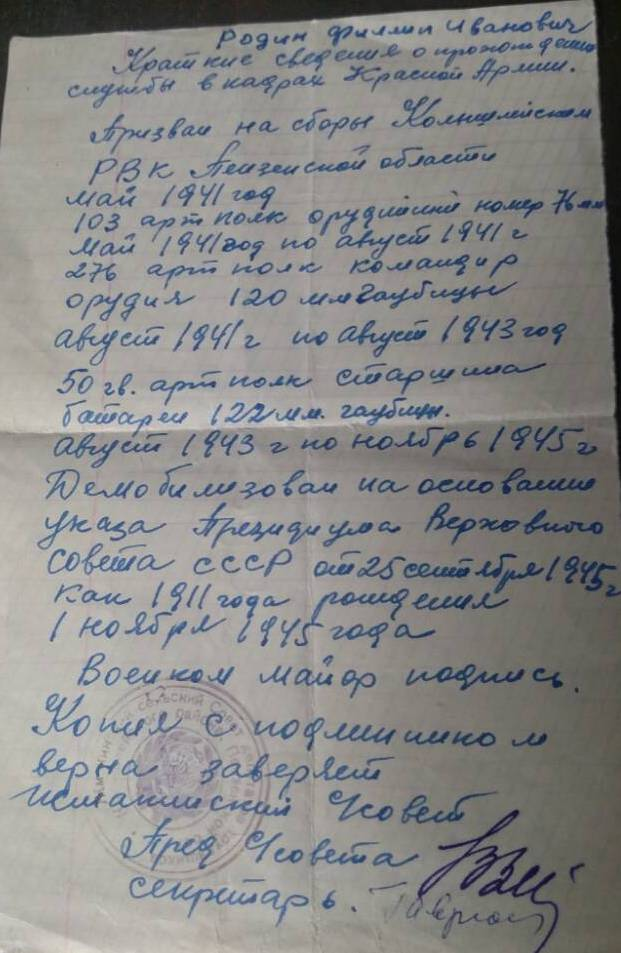 Родин Филип Иванович
Краткие сведения о прохождении
службы в кадрах Красной Армии.
Призван на сборы Колышлейским
РВК Пензенской области
май 1941 год
103 арт полк орудийный номер 76 мм
май 1941 год по август 1941 г
276 арт полк командир
орудия 120 мм гаубицы
август 1941 г по август 1943 год
50 гв. арт полк старшина
батареи 122 мм. гаубицы.
август 1943 г по ноябрь 1945 г
Демобилизован на основание
указа Президиума Верховного
Совета СССР от 25 сентября 1945 г
как 1911 года рождения
1 ноября 1945 года
Военком майор подпись.
Копия с подлинником
верна заверяет
с/совет
Пред с/совета
секретарь.